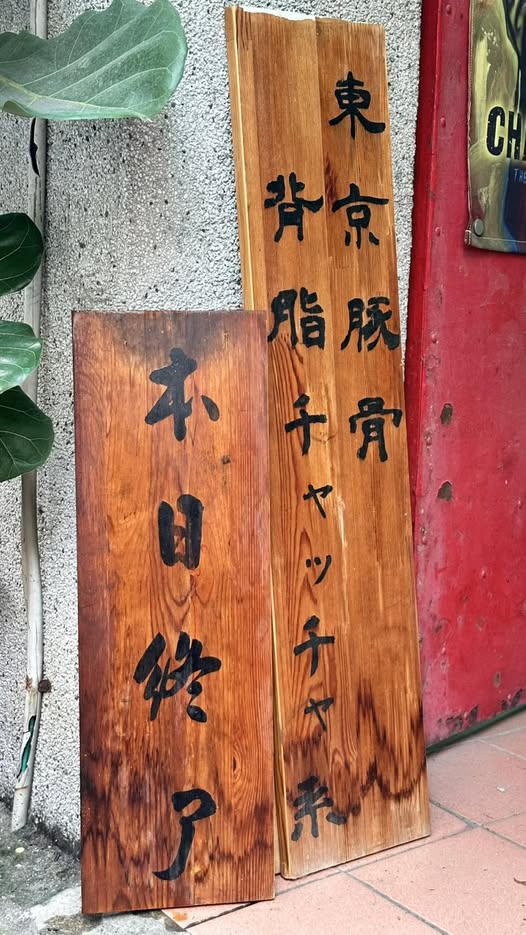 東京豚骨
背脂チャッチャ系
本日終了
CH
TH